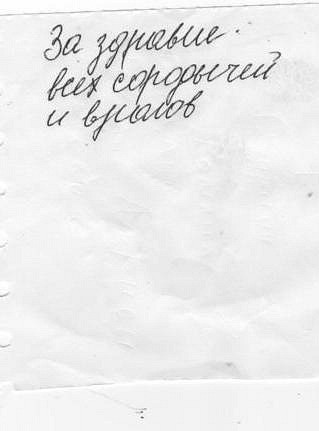 За здравие.
всех сородычей
и врагов